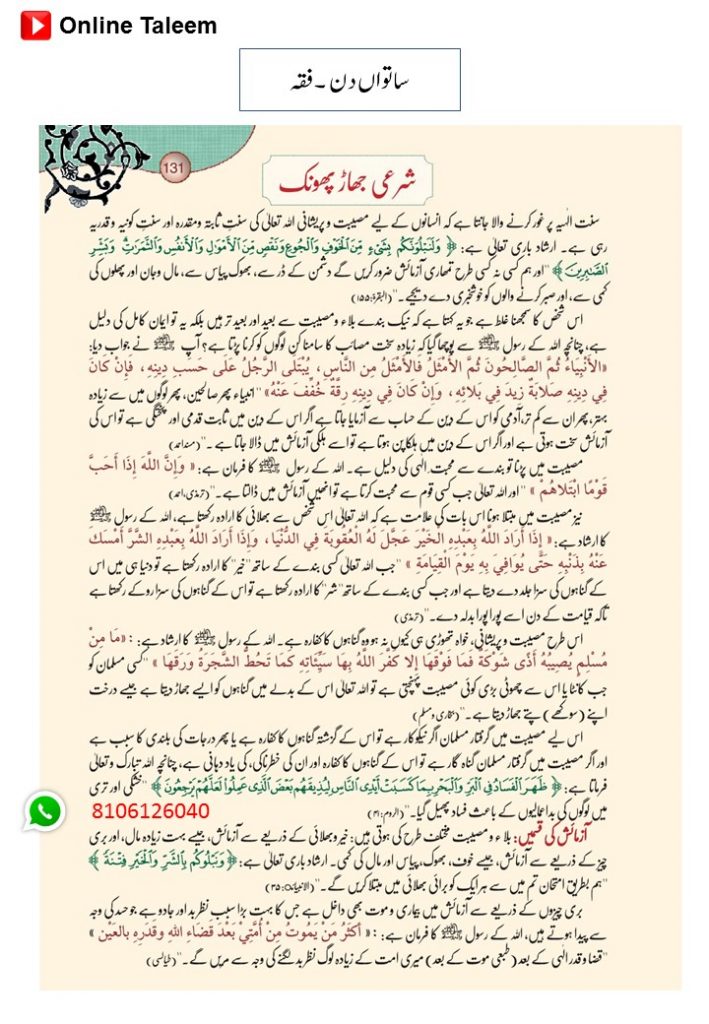 Online Taleem
ساتواں دن ۔ فقہ
131
شرعی جھاڑ پھونک
سنت الٰہیہ پر غور کرنے والا جانتا ہے کہ انسانوں کے لیے مصیبت و پریشانی اللہ تعالیٰ کی سنتِ ثابتہ ومقدرہ اور سنتِ کونیہ و قدریہ
رہی ہے۔ ارشاد باری تعالیٰ ہے: ﴿ وَلَنَبْلُوَنَّكُم بِشَىْءٍ مِّنَ الْخَوْفِ وَالْجُوعِ وَنَقْصٍ مِّنَ الْأَمْوَالِ وَالْأَنفُسِ وَالثَّمَرَاتِ وَبَشِّرِ
الصَّابِرِينَ ﴾ "اور ہم کسی نہ کسی طرح تمھاری آزمائش ضرور کریں گے دشمن کے ڈر سے، بھوک پیاس سے، مال وجان اور پھلوں کی
کمی سے، اور صبر کرنے والوں کو خوشخبری دے دیجیے۔" (البقرۃ:۱۵۵)
اس شخص کا سمجھنا غلط ہے جو یہ کہتا ہے کہ نیک بندے بلاء ومصیبت سے بعید اور بعید تر ہیں بلکہ یہ تو ایمان کامل کی دلیل
ہے، چنانچہ اللہ کے رسول ﷺ سے پوچھا گیا کہ زیادہ سخت مصائب کا سامنا کن لوگوں کو کرنا پڑتا ہے؟ آپ ﷺ نے جواب دیا:
«الأَنْبِيَاءُ ثُمَّ الصَّالِحُونَ ثُمَّ الأَمْثَلُ فَالأَمْثَلُ مِنَ النَّاسِ، يُبْتَلَى الرَّجُلُ عَلَى حَسَبِ دِينِهِ، فَإِنْ كَانَ
فِي دِينِهِ صَلَابَةٌ زِيدَ فِي بَلائِهِ، وَإِنْ كَانَ فِي دِينِهِ رِقَّةٌ خُفِّفَ عَنْهُ» "انبیاء پھر صالحین، پھر لوگوں میں سے زیادہ
بہتر، پھر ان سے کم تر، آدمی کو اس کے دین کے حساب سے آزمایا جاتا ہے اگر اس کے دین میں ثابت قدمی اور پختگی ہے تو اس کی
آزمائش سخت ہوتی ہے اور اگر اس کے دین میں ہلکا پن ہوتا ہے تو اسے ہلکی آزمائش میں ڈالا جاتا ہے۔" (مسند احمد)
مصیبت میں پڑنا تو بندے سے محبت الٰہی کی دلیل ہے۔ اللہ کے رسول ﷺ کا فرمان ہے: « وَإِنَّ اللَّهَ إِذَا أَحَبَّ
قَوْمًا ابْتَلاهُمْ » "اور اللہ تعالیٰ جب کسی قوم سے محبت کرتا ہے تو انھیں آزمائش میں ڈالتا ہے۔" (ترمذی، احمد)
نیز مصیبت میں مبتلا ہونا اس بات کی علامت ہے کہ اللہ تعالیٰ اس شخص سے بھلائی کا ارادہ رکھتا ہے، اللہ کے رسول ﷺ
کا ارشاد ہے: « إِذَا أَرَادَ اللَّهُ بِعَبْدِهِ الْخَيْرَ عَجَّلَ لَهُ الْعُقُوبَةَ فِي الدُّنْيَا، وَإِذَا أَرَادَ اللَّهُ بِعَبْدِهِ الشَّرَّ أَمْسَكَ
عَنْهُ بِذَنْبِهِ حَتَّى يُوَافِيَ بِهِ يَوْمَ الْقِيَامَةِ » "جب اللہ تعالیٰ کسی بندے کے ساتھ "خیر" کا ارادہ رکھتا ہے تو دنیا ہی میں اس
کے گناہوں کی سزا جلد دے دیتا ہے اور جب کسی بندے کے ساتھ "شر" کا ارادہ رکھتا ہے تو اس کے گناہوں کی سزا روکے رکھتا ہے
تاکہ قیامت کے دن اسے پورا پورا بدلہ دے۔" (ترمذی)
اس طرح مصیبت و پریشانی، خواہ تھوڑی ہی کیوں نہ ہو وہ گناہوں کا کفارہ ہے۔ اللہ کے رسول ﷺ کا ارشاد ہے: : «مَا مِنْ
مُسْلِمٍ يُصِيبُهُ أَذًى شَوْكَةٌ فَمَا فَوْقَهَا إِلا كَفَّرَ اللَّهُ بِهَا سَيِّئَاتِهِ كَمَا تَحُطُّ الشَّجَرَةُ وَرَقَهَا » "کسی مسلمان کو
جب کانٹا یا اس سے چھوٹی بڑی کوئی مصیبت پہنچتی ہے تو اللہ تعالیٰ اس کے بدلے میں گناہوں کو ایسے جھاڑ دیتا ہے جیسے درخت
اپنے (سوکھے) پتے جھاڑ دیتا ہے۔" (بخاری ومسلم)
اس لیے مصیبت میں گرفتار مسلمان اگر نیکوکار ہے تو اس کے گزشتہ گناہوں کا کفارہ ہے یا پھر درجات کی بلندی کا سبب ہے
اور اگر مصیبت میں گرفتار مسلمان گناہ گار ہے تو اس کے گناہوں کا کفارہ اور ان کی خطرناکی کی یاد دہانی ہے، چنانچہ اللہ تبارک وتعالیٰ
فرماتا ہے: ﴿ ظَهَرَ الْفَسَادُ فِي الْبَرِّ وَالْبَحْرِ بِمَا كَسَبَتْ أَيْدِي النَّاسِ لِيُذِيقَهُم بَعْضَ الَّذِي عَمِلُوا لَعَلَّهُمْ يَرْجِعُونَ ﴾ "خشکی اور تری
میں لوگوں کی بداعمالیوں کے باعث فساد پھیل گیا۔" (الروم:۴۱)
8106126040
آزمائش کی قسمیں: بلاء و مصیبت مختلف طرح کی ہوتی ہیں: خیر و بھلائی کے ذریعے سے آزمائش، جیسے بہت زیادہ مال، اور بری
چیز کے ذریعے سے آزمائش، جیسے خوف، بھوک، پیاس اور مال کی کمی۔ ارشاد باری تعالیٰ ہے: ﴿ وَنَبْلُوكُم بِالشَّرِّ وَالْخَيْرِ فِتْنَةً ﴾
"ہم بطریق امتحان تم میں سے ہر ایک کو برائی بھلائی میں مبتلا کریں گے۔" (الانبیاء:۳۵)
بری چیزوں کے ذریعے سے آزمائش میں بیماری و موت بھی داخل ہے جس کا بہت بڑا سبب نظر بد اور جادو ہے جو حسد کی وجہ
سے پیدا ہوتے ہیں، اللہ کے رسول ﷺ کا فرمان ہے: : « أَكْثَرُ مَنْ يَمُوتُ مِنْ أُمَّتِي بَعْدَ قَضَاءِ اللهِ وقَدَرِهِ بالعَيْنِ »
"قضا و قدر الٰہی کے بعد (طبعی موت کے بعد) میری امت کے زیادہ لوگ نظر بد لگنے کی وجہ سے مریں گے۔" (طیالسی)